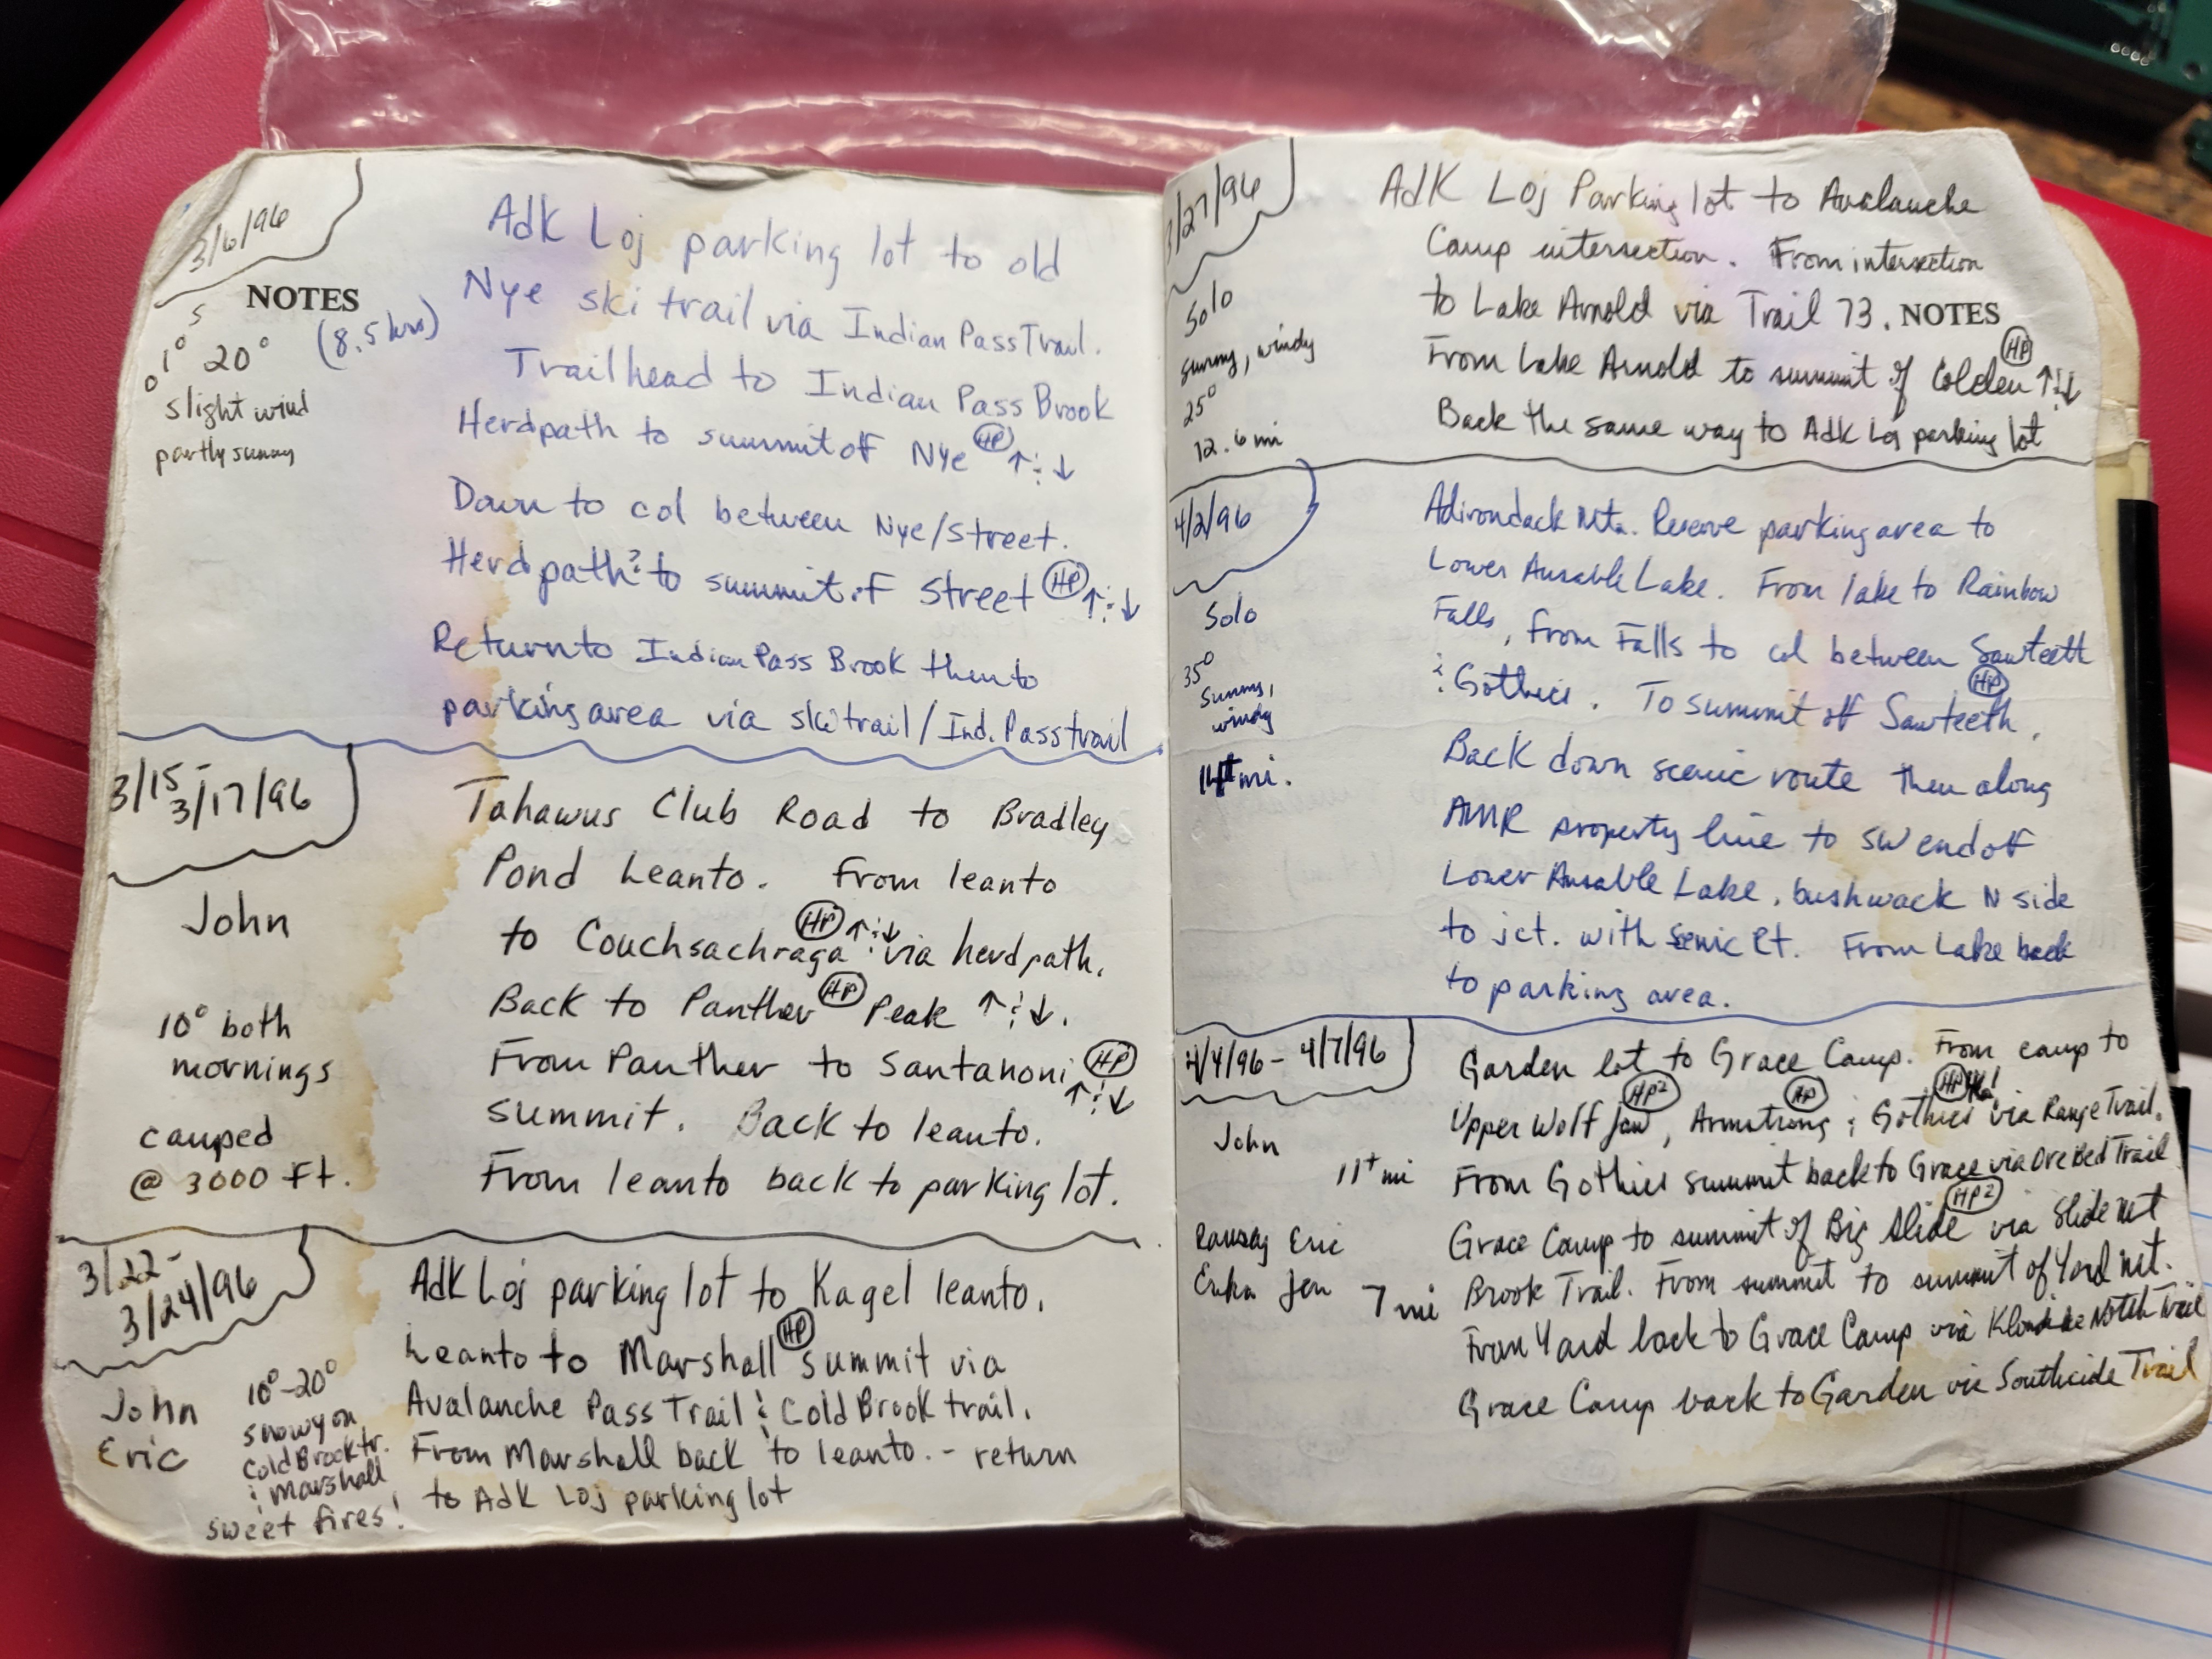 3/6/96
NOTES
5
(8.5 hrs)
0 1° 20°
slight wind
partly sunny
AdK Loj parking lot to old
Nye ski trail via Indian Pass Trail.
Trailhead to Indian Pass Brook
Herdpath to summit of Nye HP ↑&↓
Down to col between Nye/Street.
Herdpath? to summit of Street HP ↑&↓
Return to Indian Pass Brook then to
parking area via ski trail/Ind. Pass trail
3/15-
3/17/96
John
10° both
mornings
camped
@ 3000 ft.
Tahawus Club Road to Bradley
Pond Leanto. From leanto
to Couchsachraga HP ↑&↓ via herdpath.
Back to Panther HP Peak ↑&↓.
From Panther to Santanoni HP ↑&↓
summit. Back to leanto.
From leanto back to parking lot.
3/22-
3/24/96
John
Eric
10°-20°
snowy on
Cold Brook tr.
& Marshall
sweet fires!
AdK Loj parking lot to Kagel leanto.
Leanto to Marshall HP summit via
Avalanche Pass Trail & Cold Brook trail.
From Marshall back to leanto. - return
to AdK Loj parking lot
3/27/96
Solo
sunny, windy
25°
12.6 mi
AdK Loj Parking lot to Avalanche
Camp intersection. From intersection
to Lake Arnold via Trail 73. NOTES
From Lake Arnold to summit of Colden HP ↑&↓
Back the same way to AdK Loj parking lot
4/2/96
Solo
35°
sunny,
windy
14+ mi.
Adirondack Mtn. Reserve parking area to
Lower Ausable Lake. From lake to Rainbow
Falls, from Falls to col between Sawteeth
& Gothics. To summit of Sawteeth HP.
Back down scenic route then along
AMR property line to SW end of
Lower Ausable Lake, bushwack N side
to jct. with Scenic Rt. From Lake back
to parking area.
4/4/96 - 4/7/96
John
11+ mi
Ramsay Eric
Erika Jen
7 mi
Garden lot to Grace Camp. From camp to
Upper Wolf Jaw HP², Armstrong HP & Gothics HP via Range Trail.
From Gothics summit back to Grace via Ore Bed Trail
Grace Camp to summit of Big Slide HP² via Slide mt
Brook Trail. From summit to summit of Yard mt.
From Yard back to Grace Camp via Klondike Notch Trail
Grace Camp back to Garden via Southside Trail